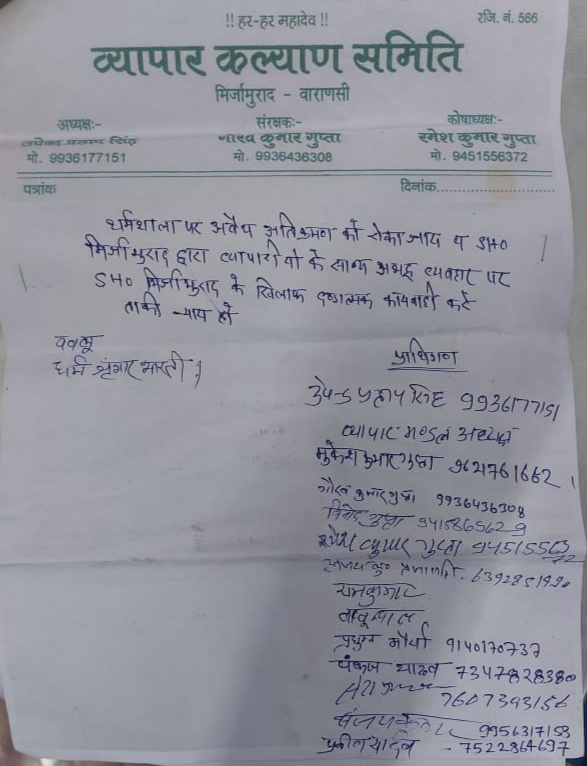 !! हर-हर महादेव !!
रजि. नं. 566
व्यापार कल्याण समिति
मिर्जामुराद - वाराणसी
अध्यक्षः-
मो. 9936177151
संरक्षकः-
गौरव कुमार गुप्ता
मो. 9936436308
कोषाध्यक्षः-
रमेश कुमार गुप्ता
मो. 9451556372
पत्रांक
दिनांक........................
धर्मशाला पर अवैध अतिक्रमण को रोका जाय व SHO
मिर्जामुराद द्वारा व्यापारीयो के साथ अभद्र व्यवहार पर
SHO मिर्जामुराद के खिलाफ दण्डात्मक कार्यवाही करे
ताकी न्याय हो
धर्म श्रृंगार भारती
प्रार्थीगन
उपेन्द्र प्रताप सिंह 9936177151
व्यापार मण्डल अध्यक्ष
मुकेश कुमार गुप्ता 9621761662
गौरव कुमार गुप्ता 9936436308
विनोद गुप्ता 9415865629
रमेश कुमार गुप्ता 9451556372
6392851920
रामकुमार
बाबूलाल
मौर्या 9140170737
पंकज यादव 7347828380
7607393156
9956317153
7522864697